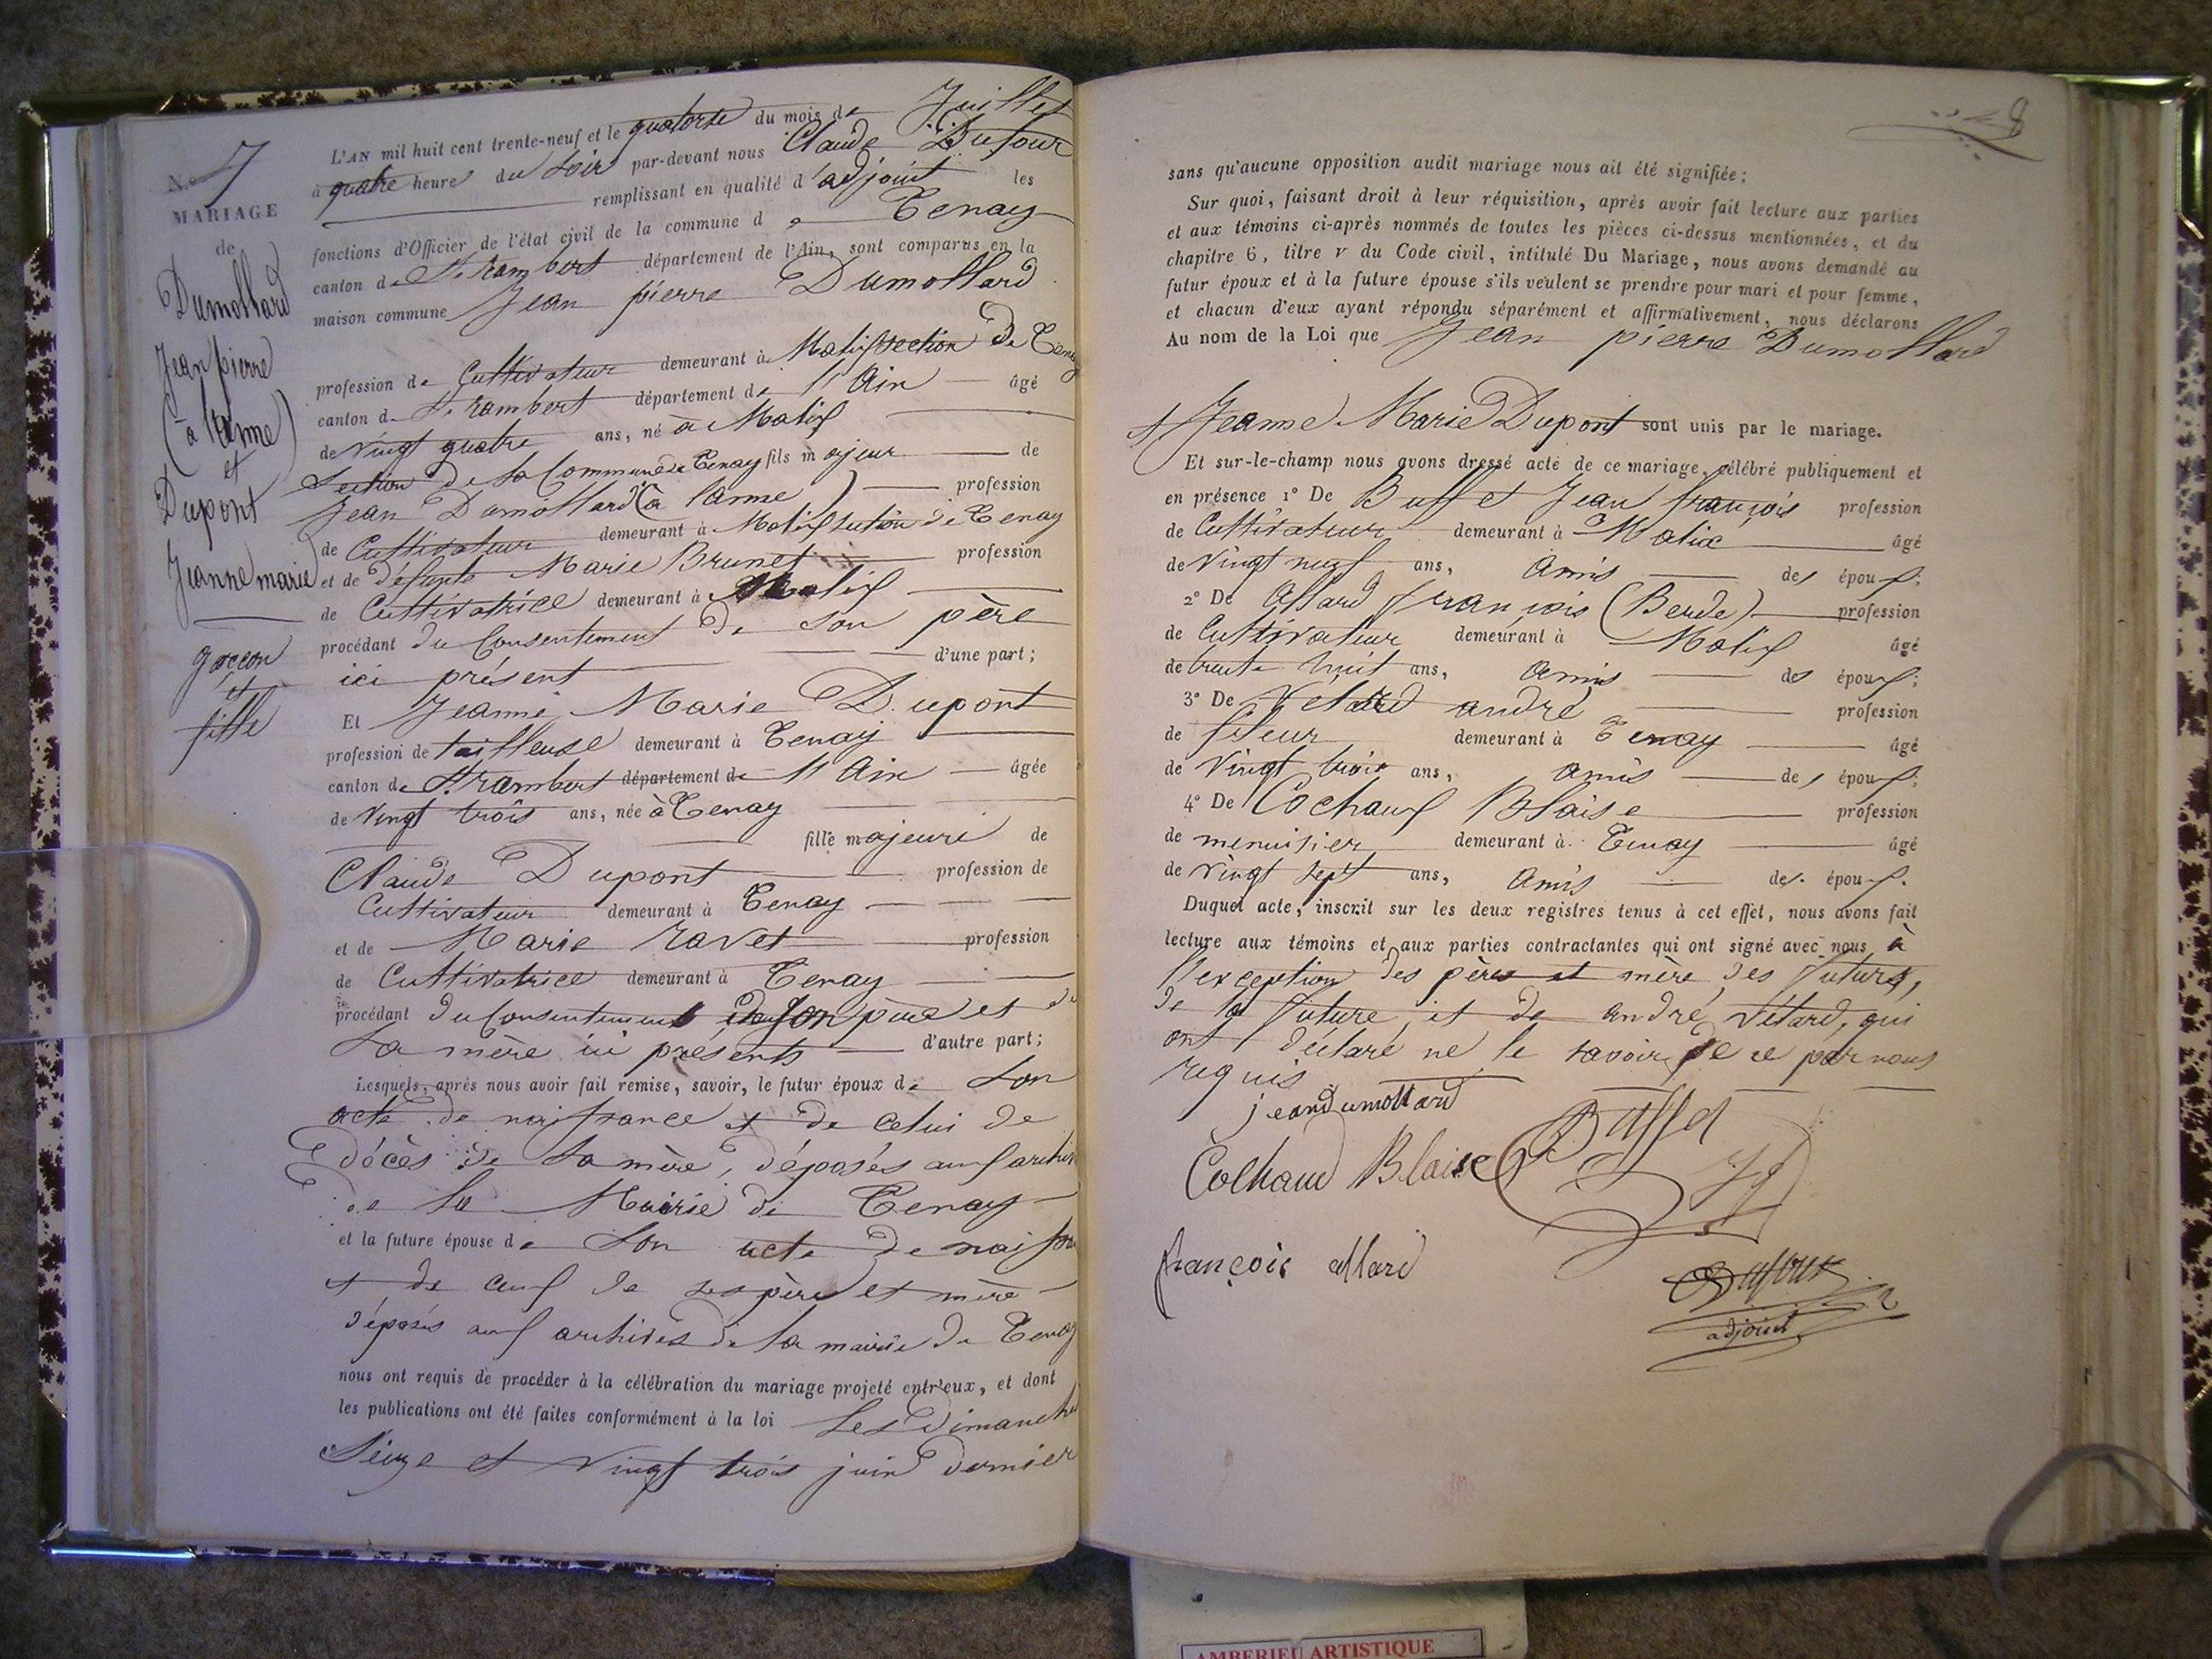 N.º 7
MARIAGE
de
Dumollard
Jean pierre
(à l'anne)
et
Dupont
Jeanne marie
garçon
et
fille
L'AN mil huit cent trente-neuf et le quatorze du mois de Juillet
à quatre heures du soir par-devant nous Claude Dufour
remplissant en qualité d'adjoint les
fonctions d'Officier de l'état civil de la commune de Tenay
canton de St. rambert département de l'Ain, sont comparus en la
maison commune Jean pierre Dumollard
profession de Cultivateur demeurant à Malix section de Tenay
canton de St. rambert département de l'Ain âgé
de vingt quatre ans, né à Malix
section de la Commune de Tenay fils majeur de
Jean Dumollard (à l'anne) profession
de Cultivateur demeurant à Malix section de Tenay
et de défunte Marie Brunet profession
de Cultivatrice demeurant à Malix
procédant du Consentement de son père
ici présent d'une part;
Et Jeanne Marie Dupont
profession de tailleuse demeurant à Tenay
canton de St. rambert département de l'Ain âgée
de vingt trois ans, née à Tenay
fille majeure de
Claude Dupont profession de
Cultivateur demeurant à Tenay
et de Marie ravet profession
de Cultivatrice demeurant à Tenay
procédant du Consentement de son père et de
sa mère ici présents d'autre part;
Lesquels, après nous avoir fait remise, savoir, le futur époux de son
acte de naissance et de celui de
décès de sa mère, déposés aux archives
de la Mairie de Tenay
et la future épouse de son acte de naissance
et de ceux de ses père et mère
déposés aux archives de la mairie de Tenay
nous ont requis de procéder à la célébration du mariage projeté entr'eux, et dont
les publications ont été faites conformément à la loi les Dimanches
Seize et vingt trois juin dernier
8
sans qu'aucune opposition audit mariage nous ait été signifiée;
Sur quoi, faisant droit à leur réquisition, après avoir fait lecture aux parties
et aux témoins ci-après nommés de toutes les pièces ci-dessus mentionnées, et du
chapitre 6, titre V du Code civil, intitulé Du Mariage, nous avons demandé au
futur époux et à la future épouse s'ils veulent se prendre pour mari et pour femme,
et chacun d'eux ayant répondu séparément et affirmativement, nous déclarons
Au nom de la Loi que Jean pierre Dumollard
et Jeanne Marie Dupont sont unis par le mariage.
Et sur-le-champ nous avons dressé acte de ce mariage, célébré publiquement et
en présence 1º De Buffet Jean françois profession
de Cultivateur demeurant à Malix âgé
de vingt neuf ans, amis des époux;
2º De Allard françois (Berde) profession
de Cultivateur demeurant à Malix âgé
de trente huit ans, amis des époux;
3º De Vetard andré profession
de fileur demeurant à Tenay âgé
de vingt trois ans, amis des époux;
4º De Cochaux Blaise profession
de menuisier demeurant à Tenay âgé
de vingt sept ans, amis des époux.
Duquel acte, inscrit sur les deux registres tenus à cet effet, nous avons fait
lecture aux témoins et aux parties contractantes qui ont signé avec nous à
l'exception des pères et mère des futurs,
de la future et de andré Vétard, qui
ont déclaré ne le savoir de ce par nous
requis
jeandumollard
Buffet
Colhaud Blaise
françois allard
Dufour
adjoint
AMBERIEU ARTISTIQUE